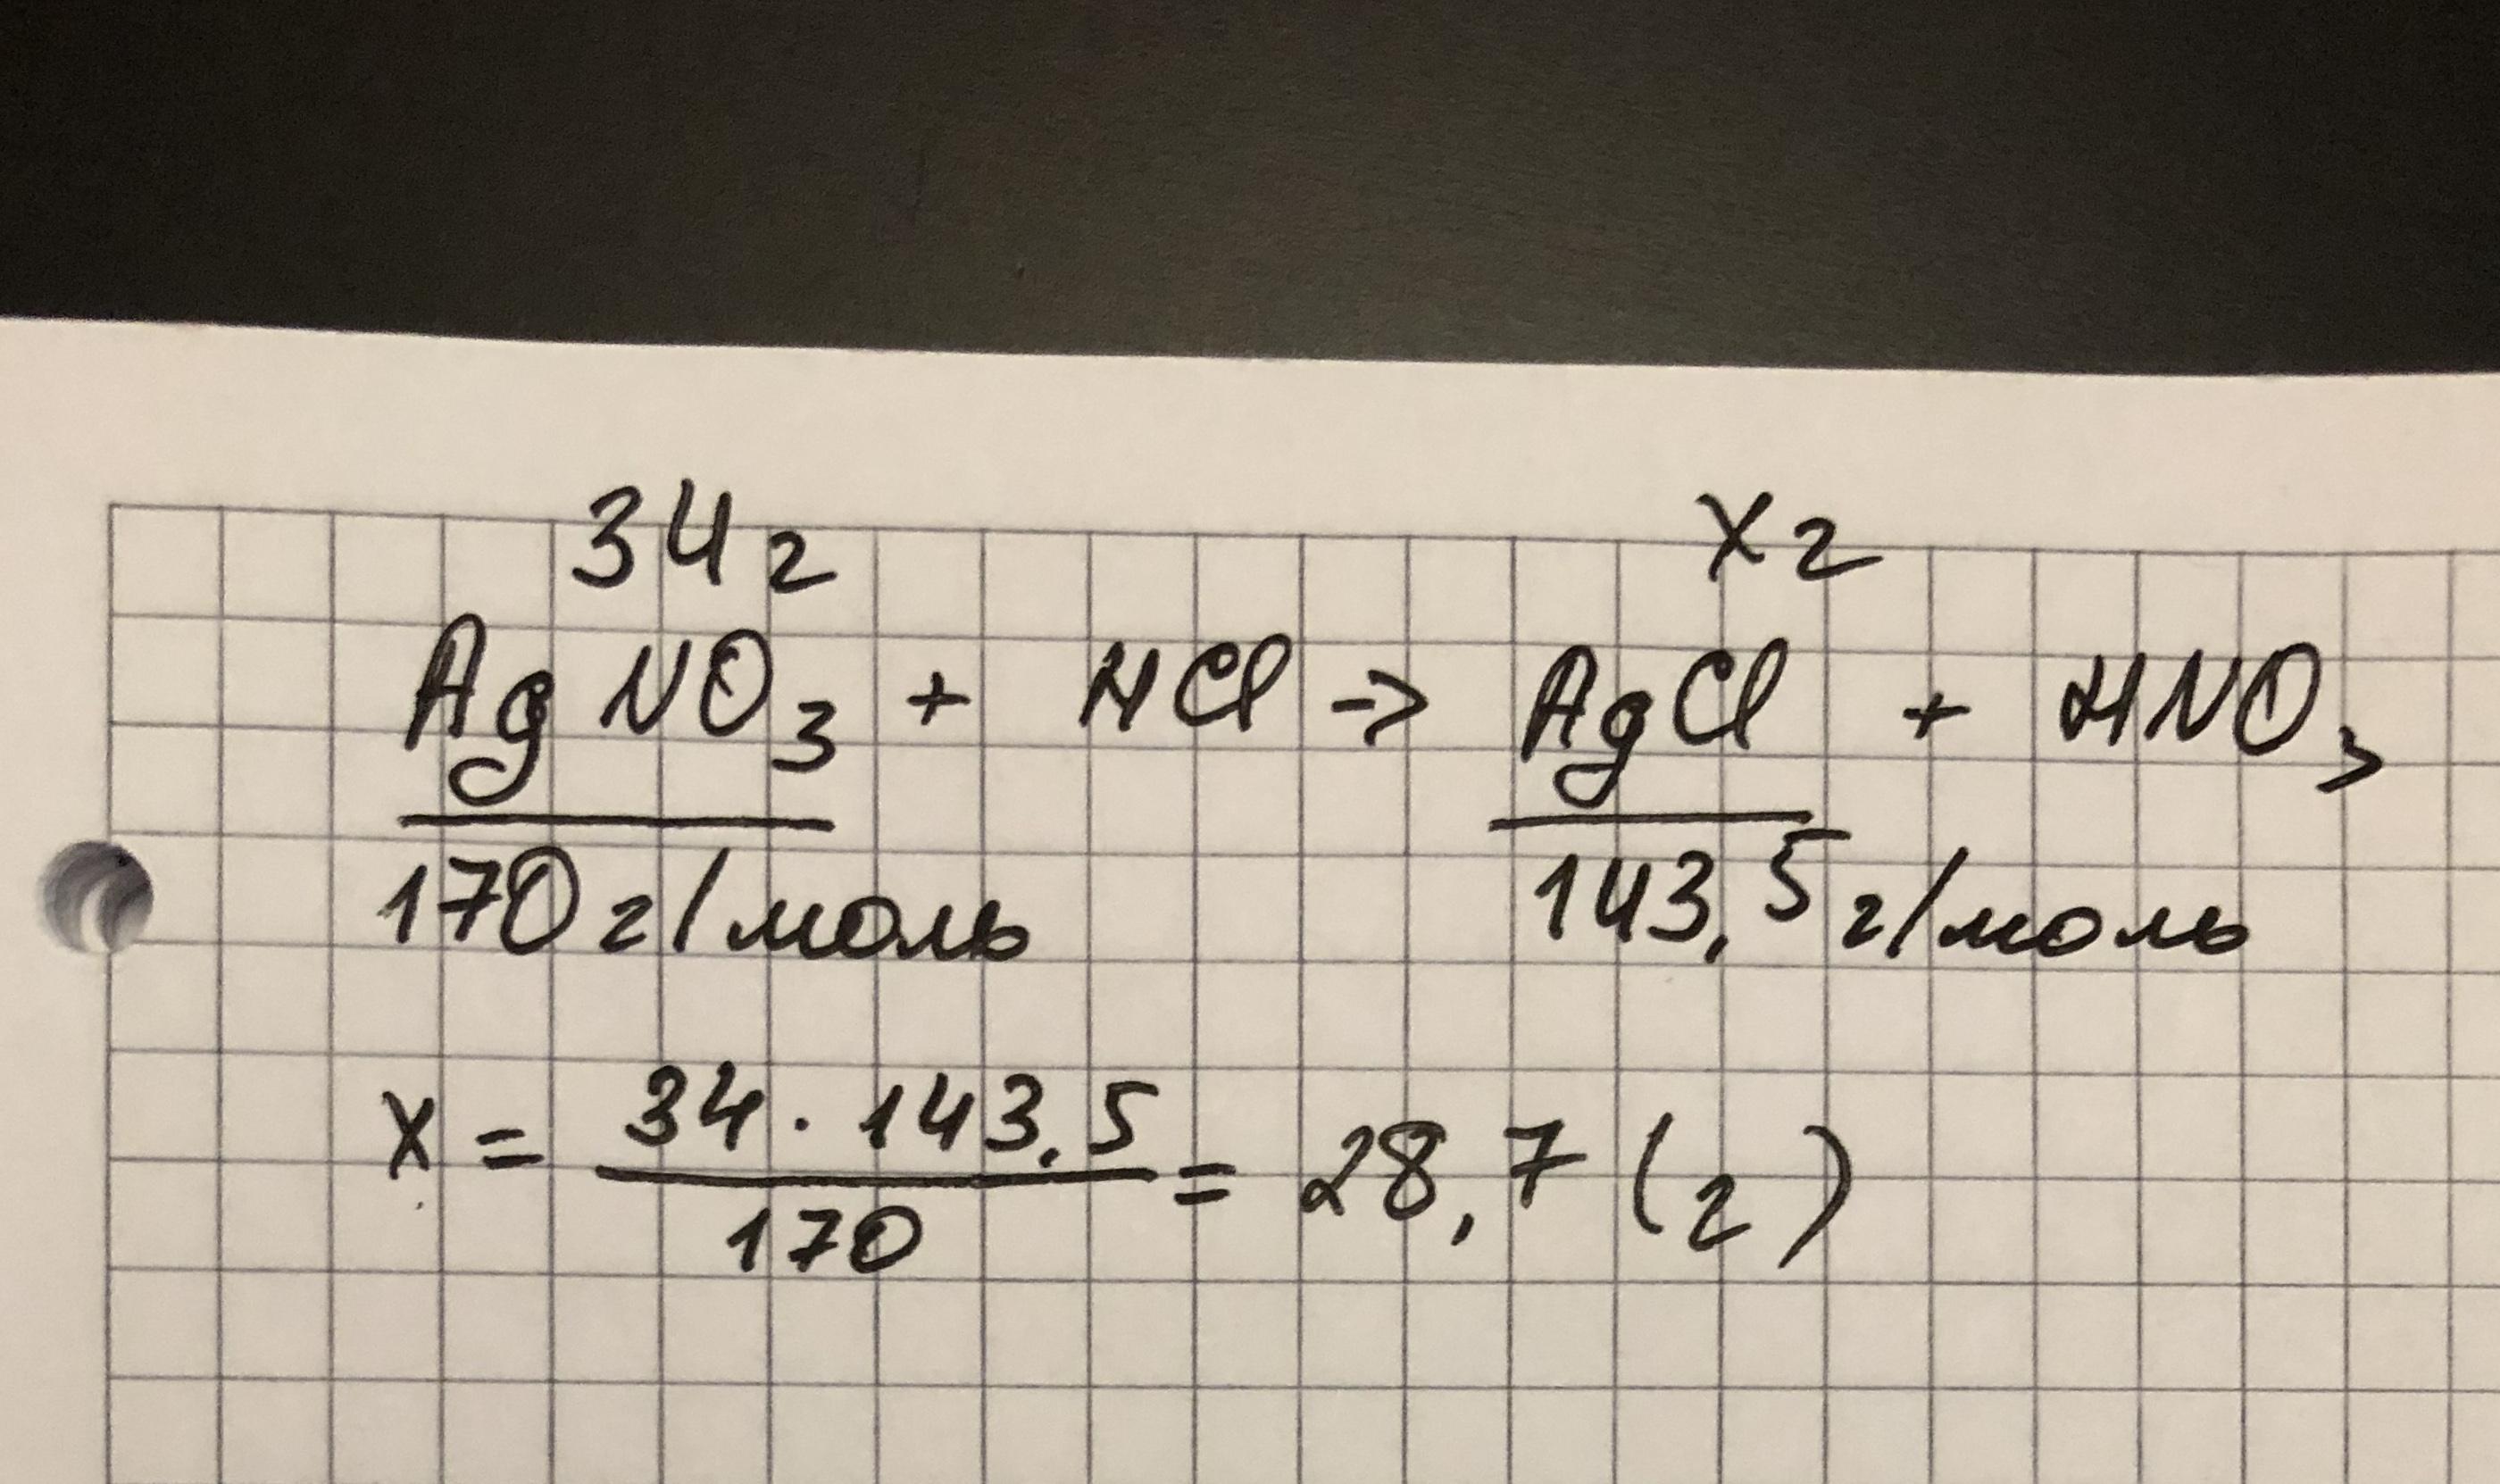 34 г х г
AgNO₃ + HCl → AgCl + HNO₃
170 г/моль 143,5 г/моль
x = 34 · 143,5 / 170 = 28,7 (г)